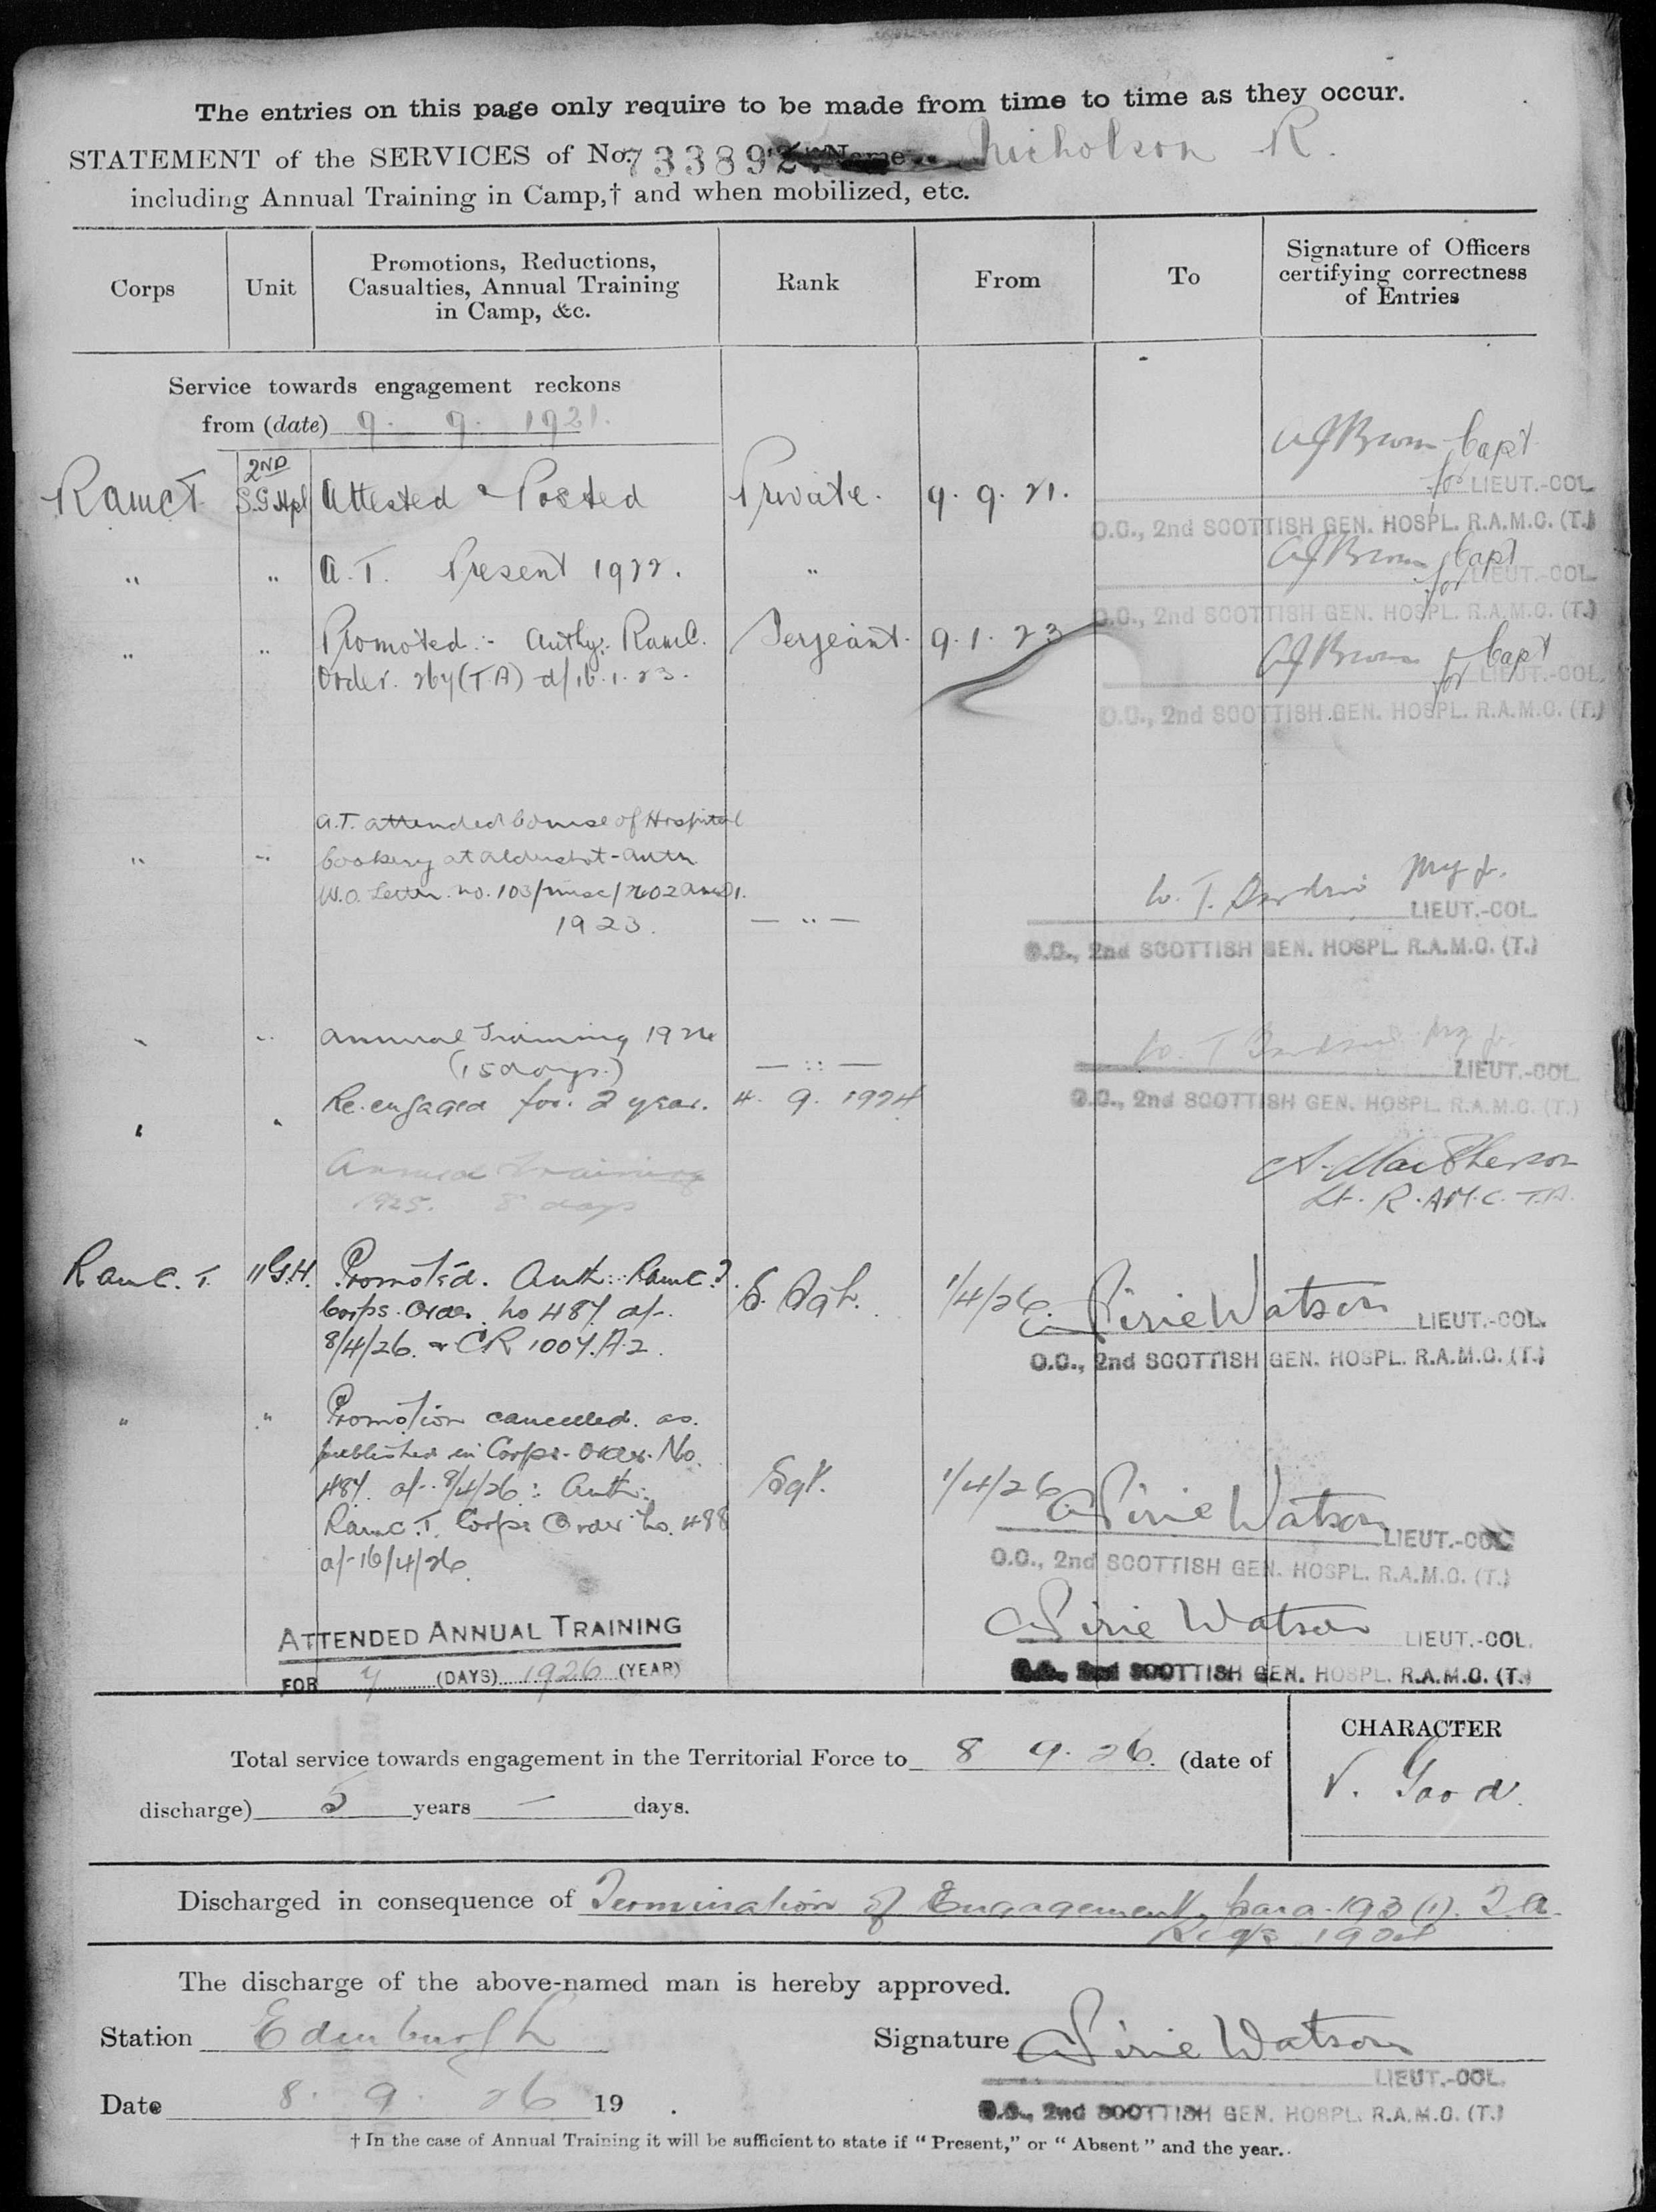 The entries on this page only require to be made from time to time as they occur.
STATEMENT of the SERVICES of No. 7338924 Name Nicholson R.
including Annual Training in Camp,† and when mobilized, etc.
Corps
Unit
Promotions, Reductions,
Casualties, Annual Training
in Camp, &c.
Rank
From
To
Signature of Officers
certifying correctness
of Entries
Service towards engagement reckons
from (date) 9. 9. 1921.
Capt
RAMCT 2ND S.G.Hpl Attested & Posted Private. 9. 9. 21. for LIEUT.-COL.
O.C., 2nd SCOTTISH GEN. HOSPL. R.A.M.C. (T.)
" " A.T. Present 1922. " AJBrown Capt for LIEUT.-COL.
O.C., 2nd SCOTTISH GEN. HOSPL. R.A.M.C. (T.)
" " Promoted :- Authy:- RAMC. Sergeant. 9. 1. 23 AJBrown Capt
Order. 267 (TA) d/16.1.23. for LIEUT.-COL.
O.C., 2nd SCOTTISH GEN. HOSPL. R.A.M.C. (T.)
A.T. attended Course of Hospital
" " Cookery at Aldershot - Auth
W.O. Letter. no. 103/misc/ W. T. LIEUT.-COL.
1923. — " —
O.C., 2nd SCOTTISH GEN. HOSPL. R.A.M.C. (T.)
" " Annual Training 1924 W. T.
(15 days.) — :: — LIEUT.-COL.
" " Re.engaged for. 2 year. 4. 9. 1924 O.C., 2nd SCOTTISH GEN. HOSPL. R.A.M.C. (T.)
Annual Training A. MacPherson
1925. 8 days Lt. R.A.M.C. T.A.
RAMC. T. G.H. Promoted. Auth: RAMC.T. S. Sgt. 1/4/26
Corps. Order. No 487 d/- Pirie Watson LIEUT.-COL.
8/4/26. & CR 1007.A.2. O.C., 2nd SCOTTISH GEN. HOSPL. R.A.M.C. (T.)
" " Promotion cancelled. as.
published in Corps. Order. No.
487. d/- 8/4/26 : Auth: Sgt. 1/4/26
RAMC.T. Corps Order No. 488 Pirie Watson LIEUT.-COL.
d/-16/4/26. O.C., 2nd SCOTTISH GEN. HOSPL. R.A.M.C. (T.)
ATTENDED ANNUAL TRAINING Pirie Watson LIEUT.-COL.
FOR (DAYS) 1926 (YEAR) O.C., 2nd SCOTTISH GEN. HOSPL. R.A.M.C. (T.)
CHARACTER
Total service towards engagement in the Territorial Force to 8 9. 26. (date of
V. Good.
discharge) 5 years — days.
Discharged in consequence of Termination of Engagement, para. 193 (1). T.A.
Regs 1924
The discharge of the above-named man is hereby approved.
Station Edinburgh Signature Pirie Watson
LIEUT.-COL.
Date 8. 9. 26 19 . O.C., 2nd SCOTTISH GEN. HOSPL. R.A.M.C. (T.)
† In the case of Annual Training it will be sufficient to state if “ Present,” or “ Absent ” and the year.